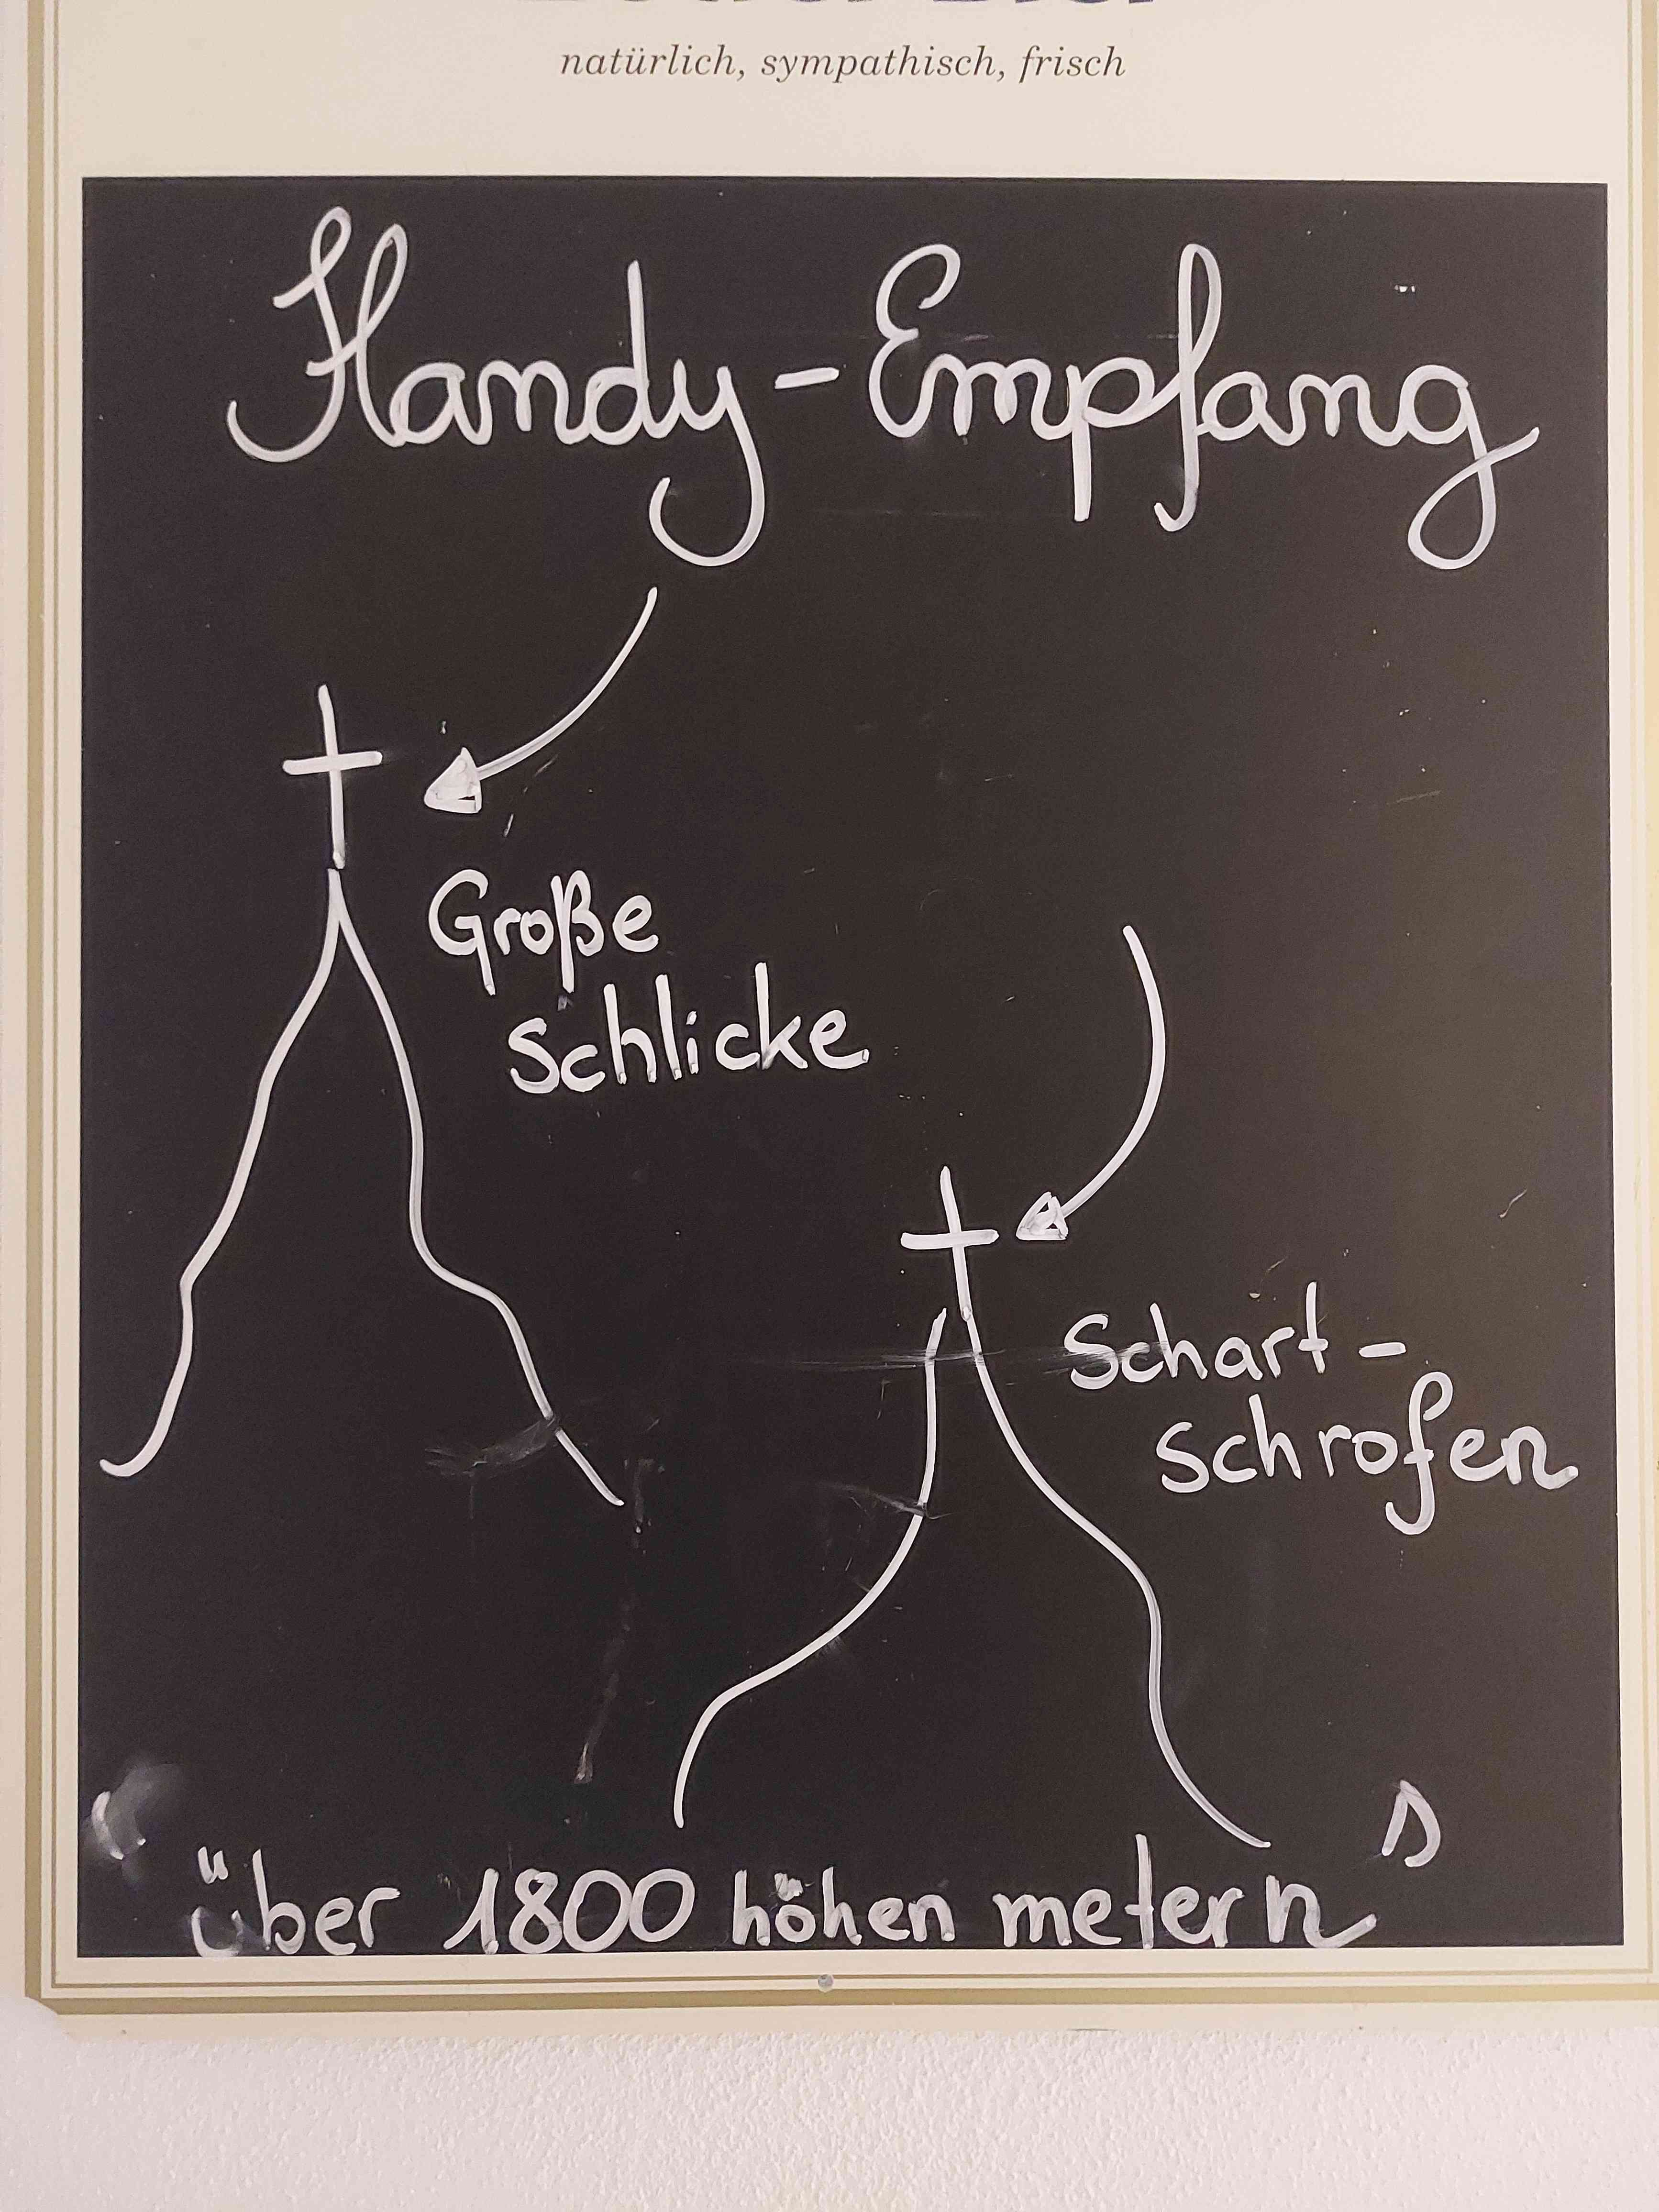 natürlich, sympathisch, frisch
Handy-Empfang
Große
Schlicke
Schart-
schrofen
über 1800 höhen metern